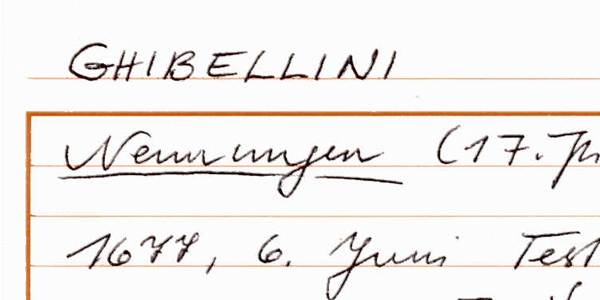 GHIBELLINI
Nennungen (17. J
1677, 6. Juni Test